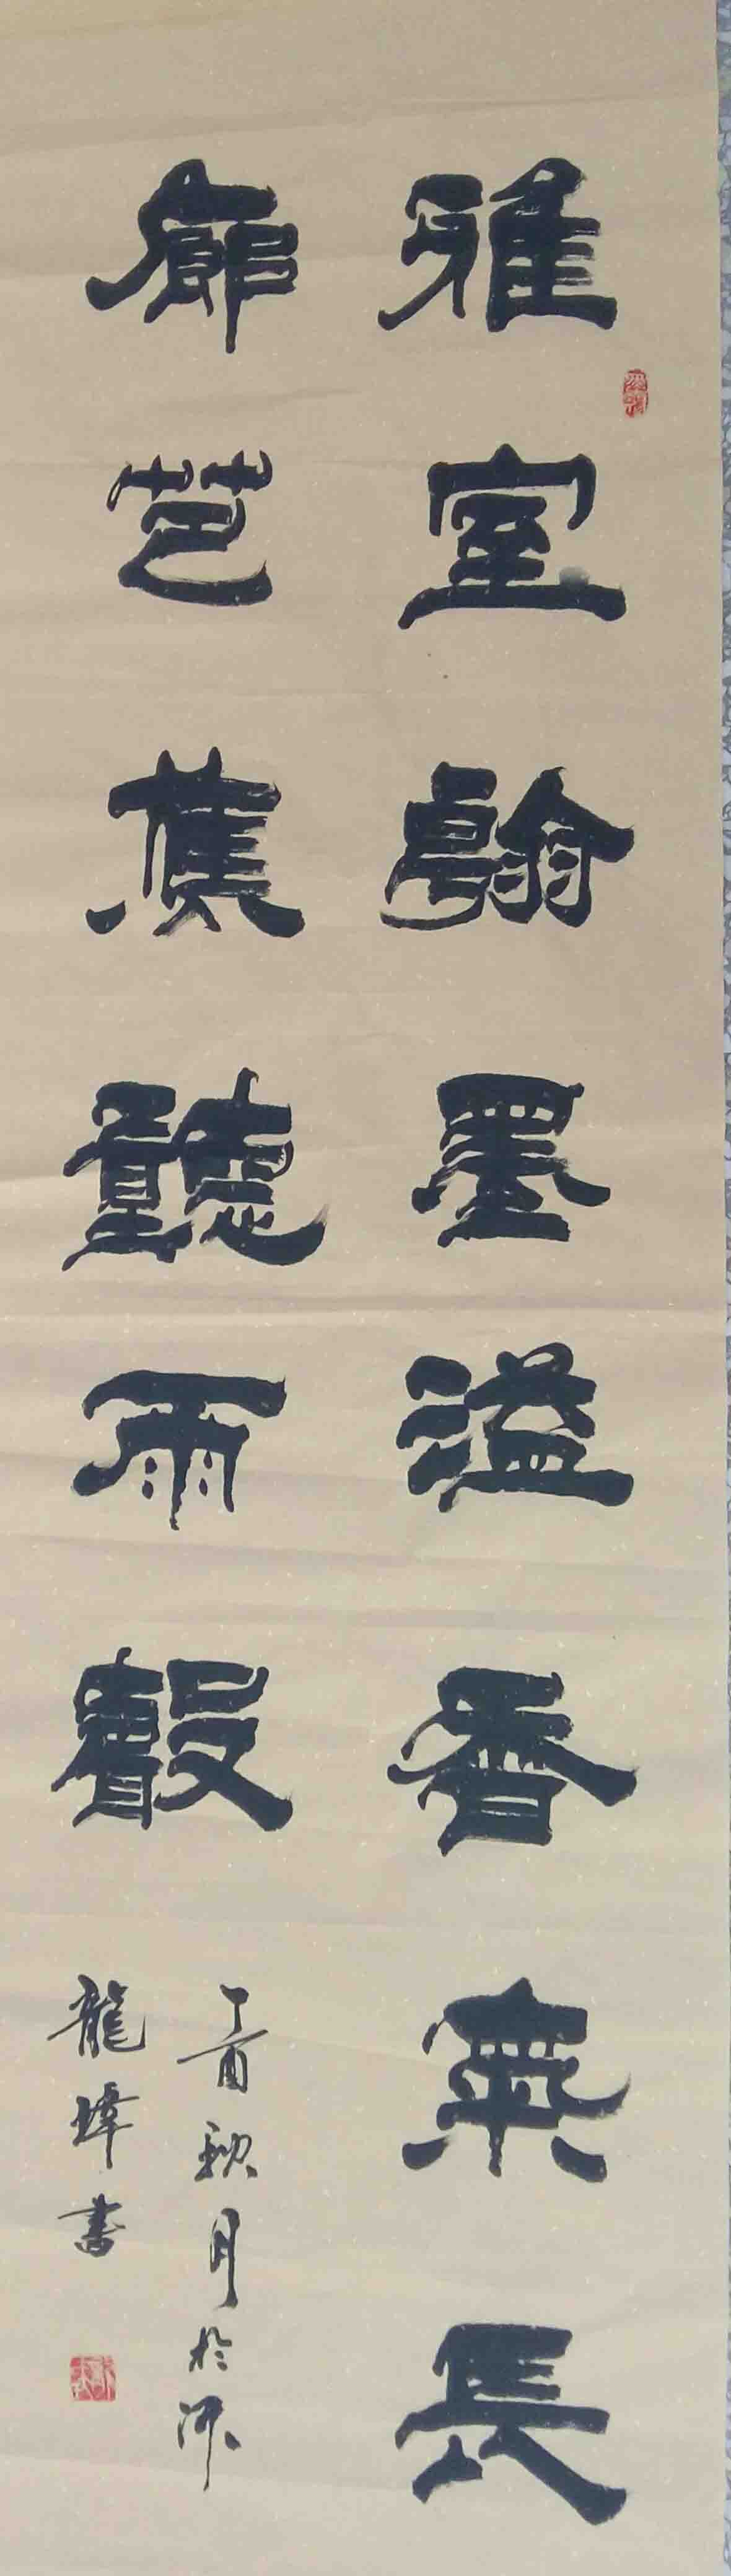 雅室翰墨溢香無長
廊芭蕉聽雨聲
丁酉秋月於
龍 書